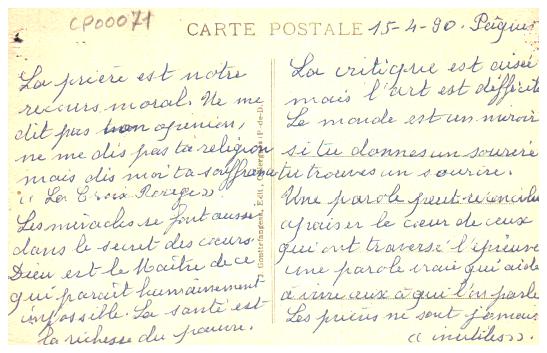 CP00071
CARTE POSTALE
15-4-90. Pâques
La prière est notre
recours moral. Ne me
dit pas ton opinion,
ne me dis pas ta religion
mais dis moi ta souffrance
"La Croix Rouge"
Les miracles se font aussi
dans le secret des cœurs.
Dieu est le Maître de ce
qui parait humainement
impossible. La santé est
la richesse du pauvre.
Gouttefangeas, Edit., P.-de-D.
La critique est aisée
mais l'art est difficile
Le monde est un miroir
si tu donnes un sourire
tu trouves un sourire.
Une parole peut
apaiser le cœur de ceux
qui ont traversé l'épreuve
une parole vraie qui aide
à vivre ceux à qui l'on parle
Les prières ne sont jamais
"inutiles".